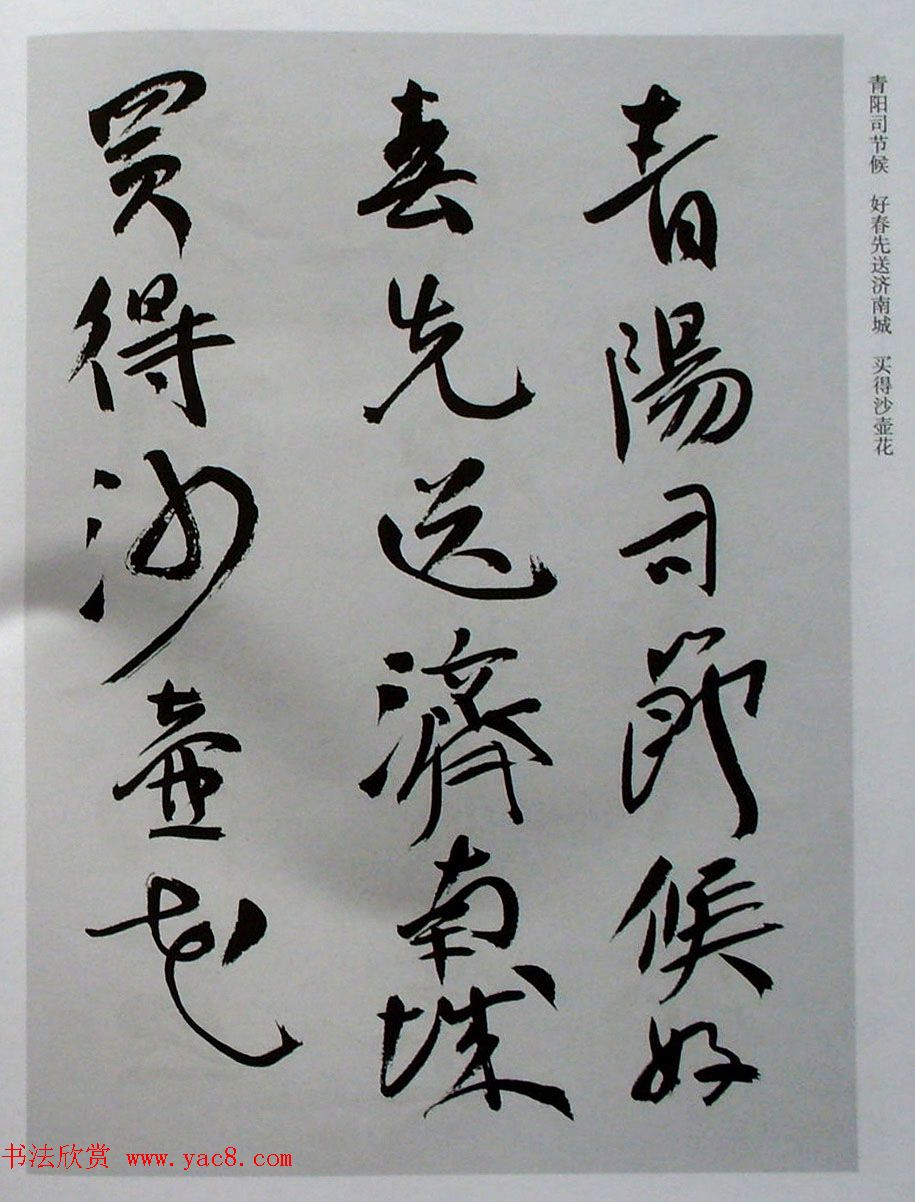 青陽司節候好
春先送濟南城
買得沙壺花
青阳司节候　好春先送济南城　买得沙壶花
书法欣赏 www.yac8.com